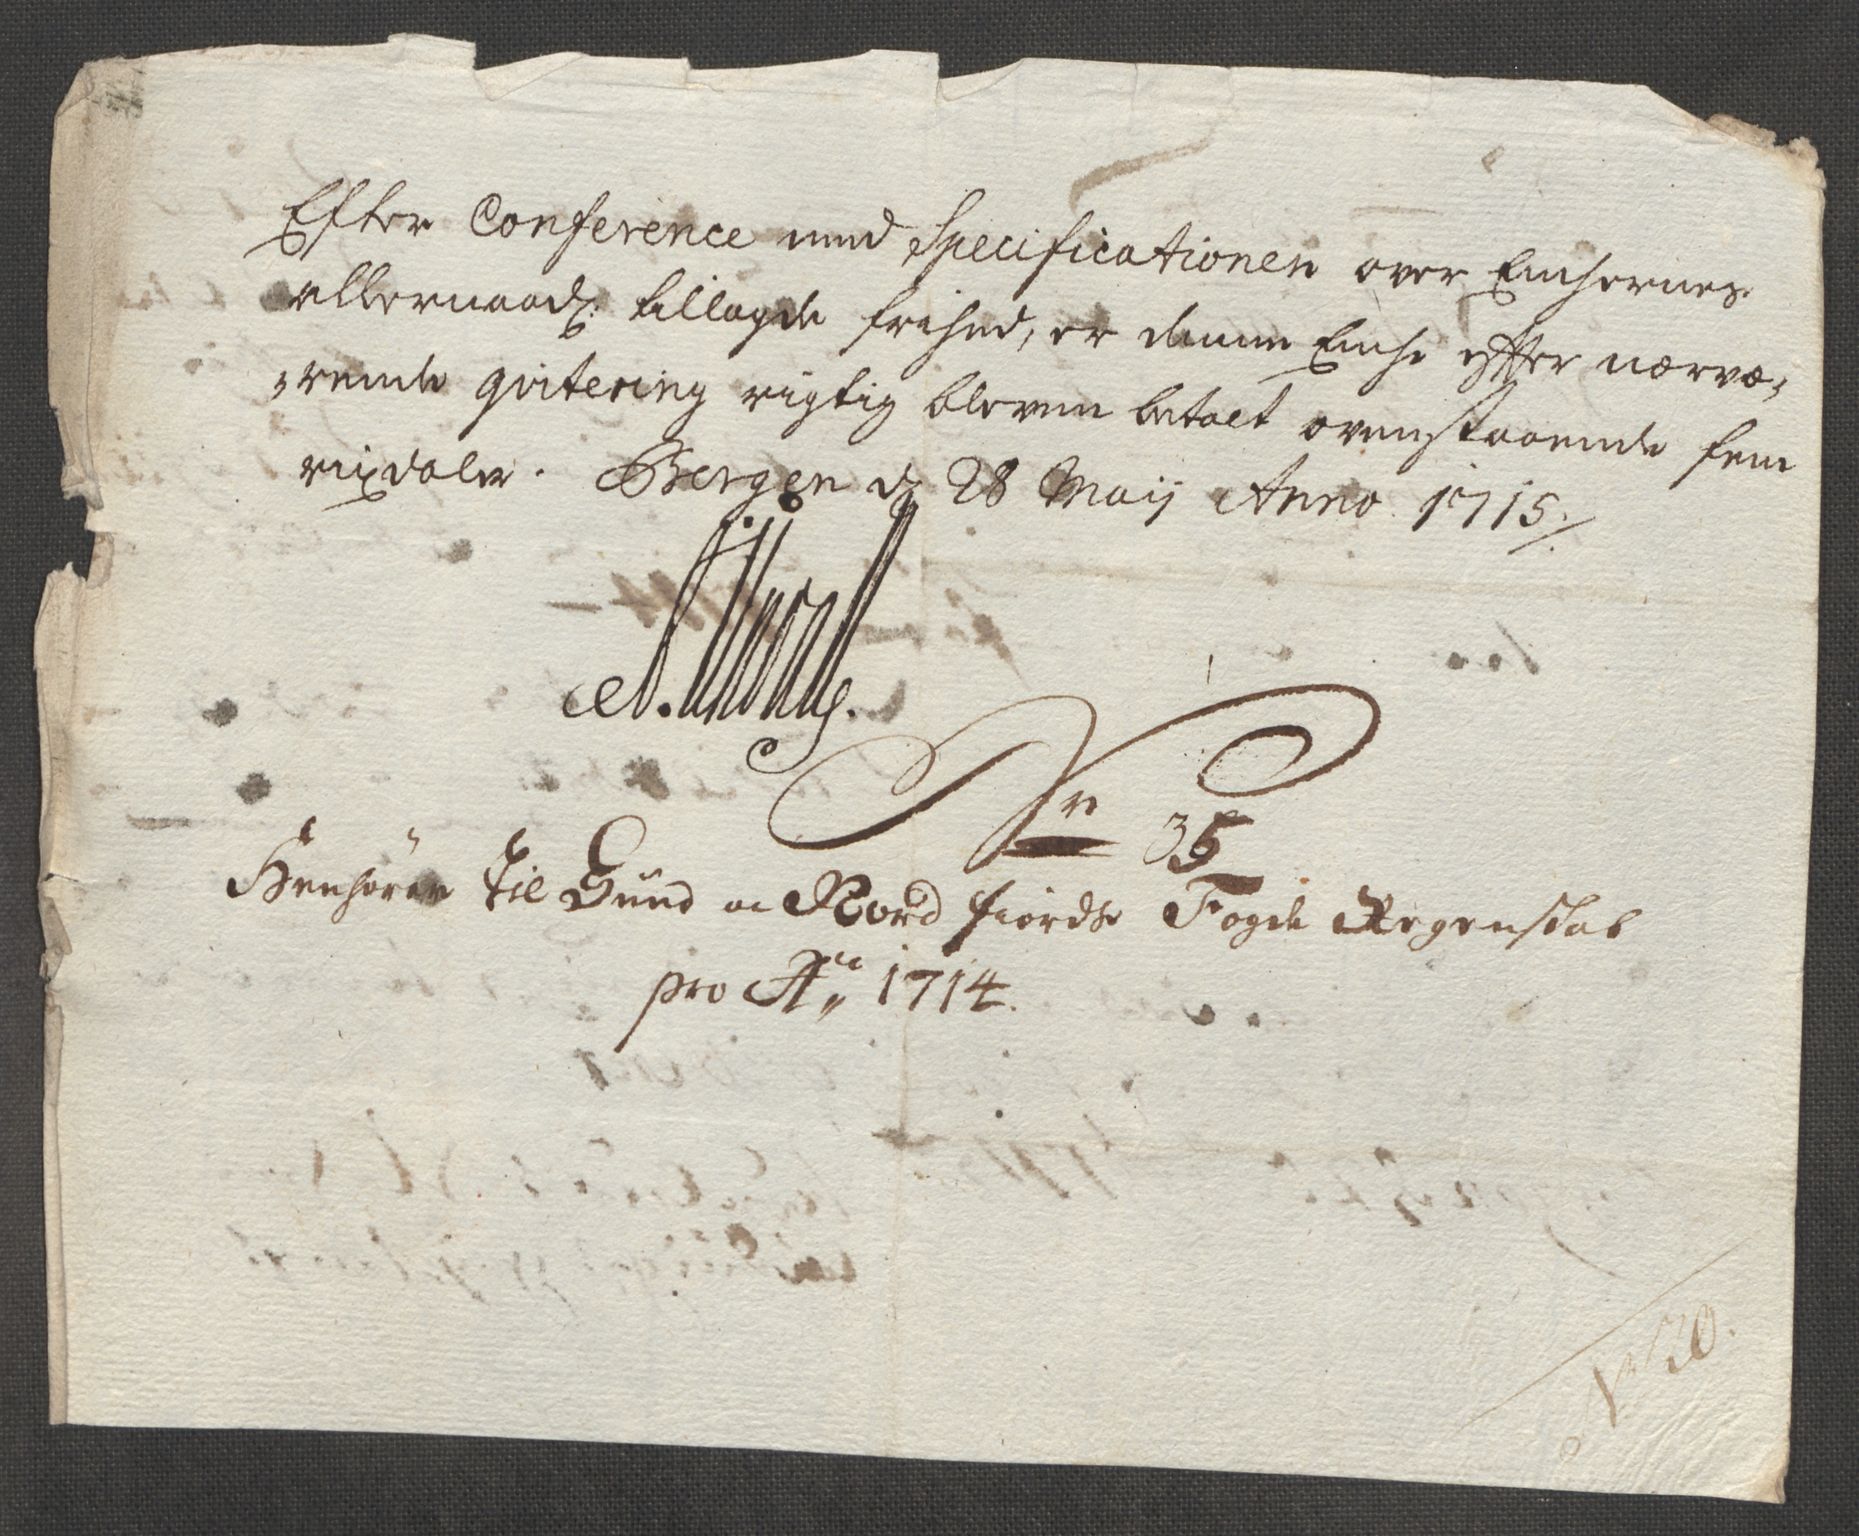 Efter Conference med Specificationen over Enchernes
allernaadg: tillagde frihed, er denne Enche efter nærvæ-
rende qvitering rigtig bleven betalt ovenstaaende fem
rixdaler. Bergen d 28 Maij Anno 1715.
Nr 35
Henhörer til Sund oc Nord fiords Fogde Regenskab
pro Ao 1714.
No 30.